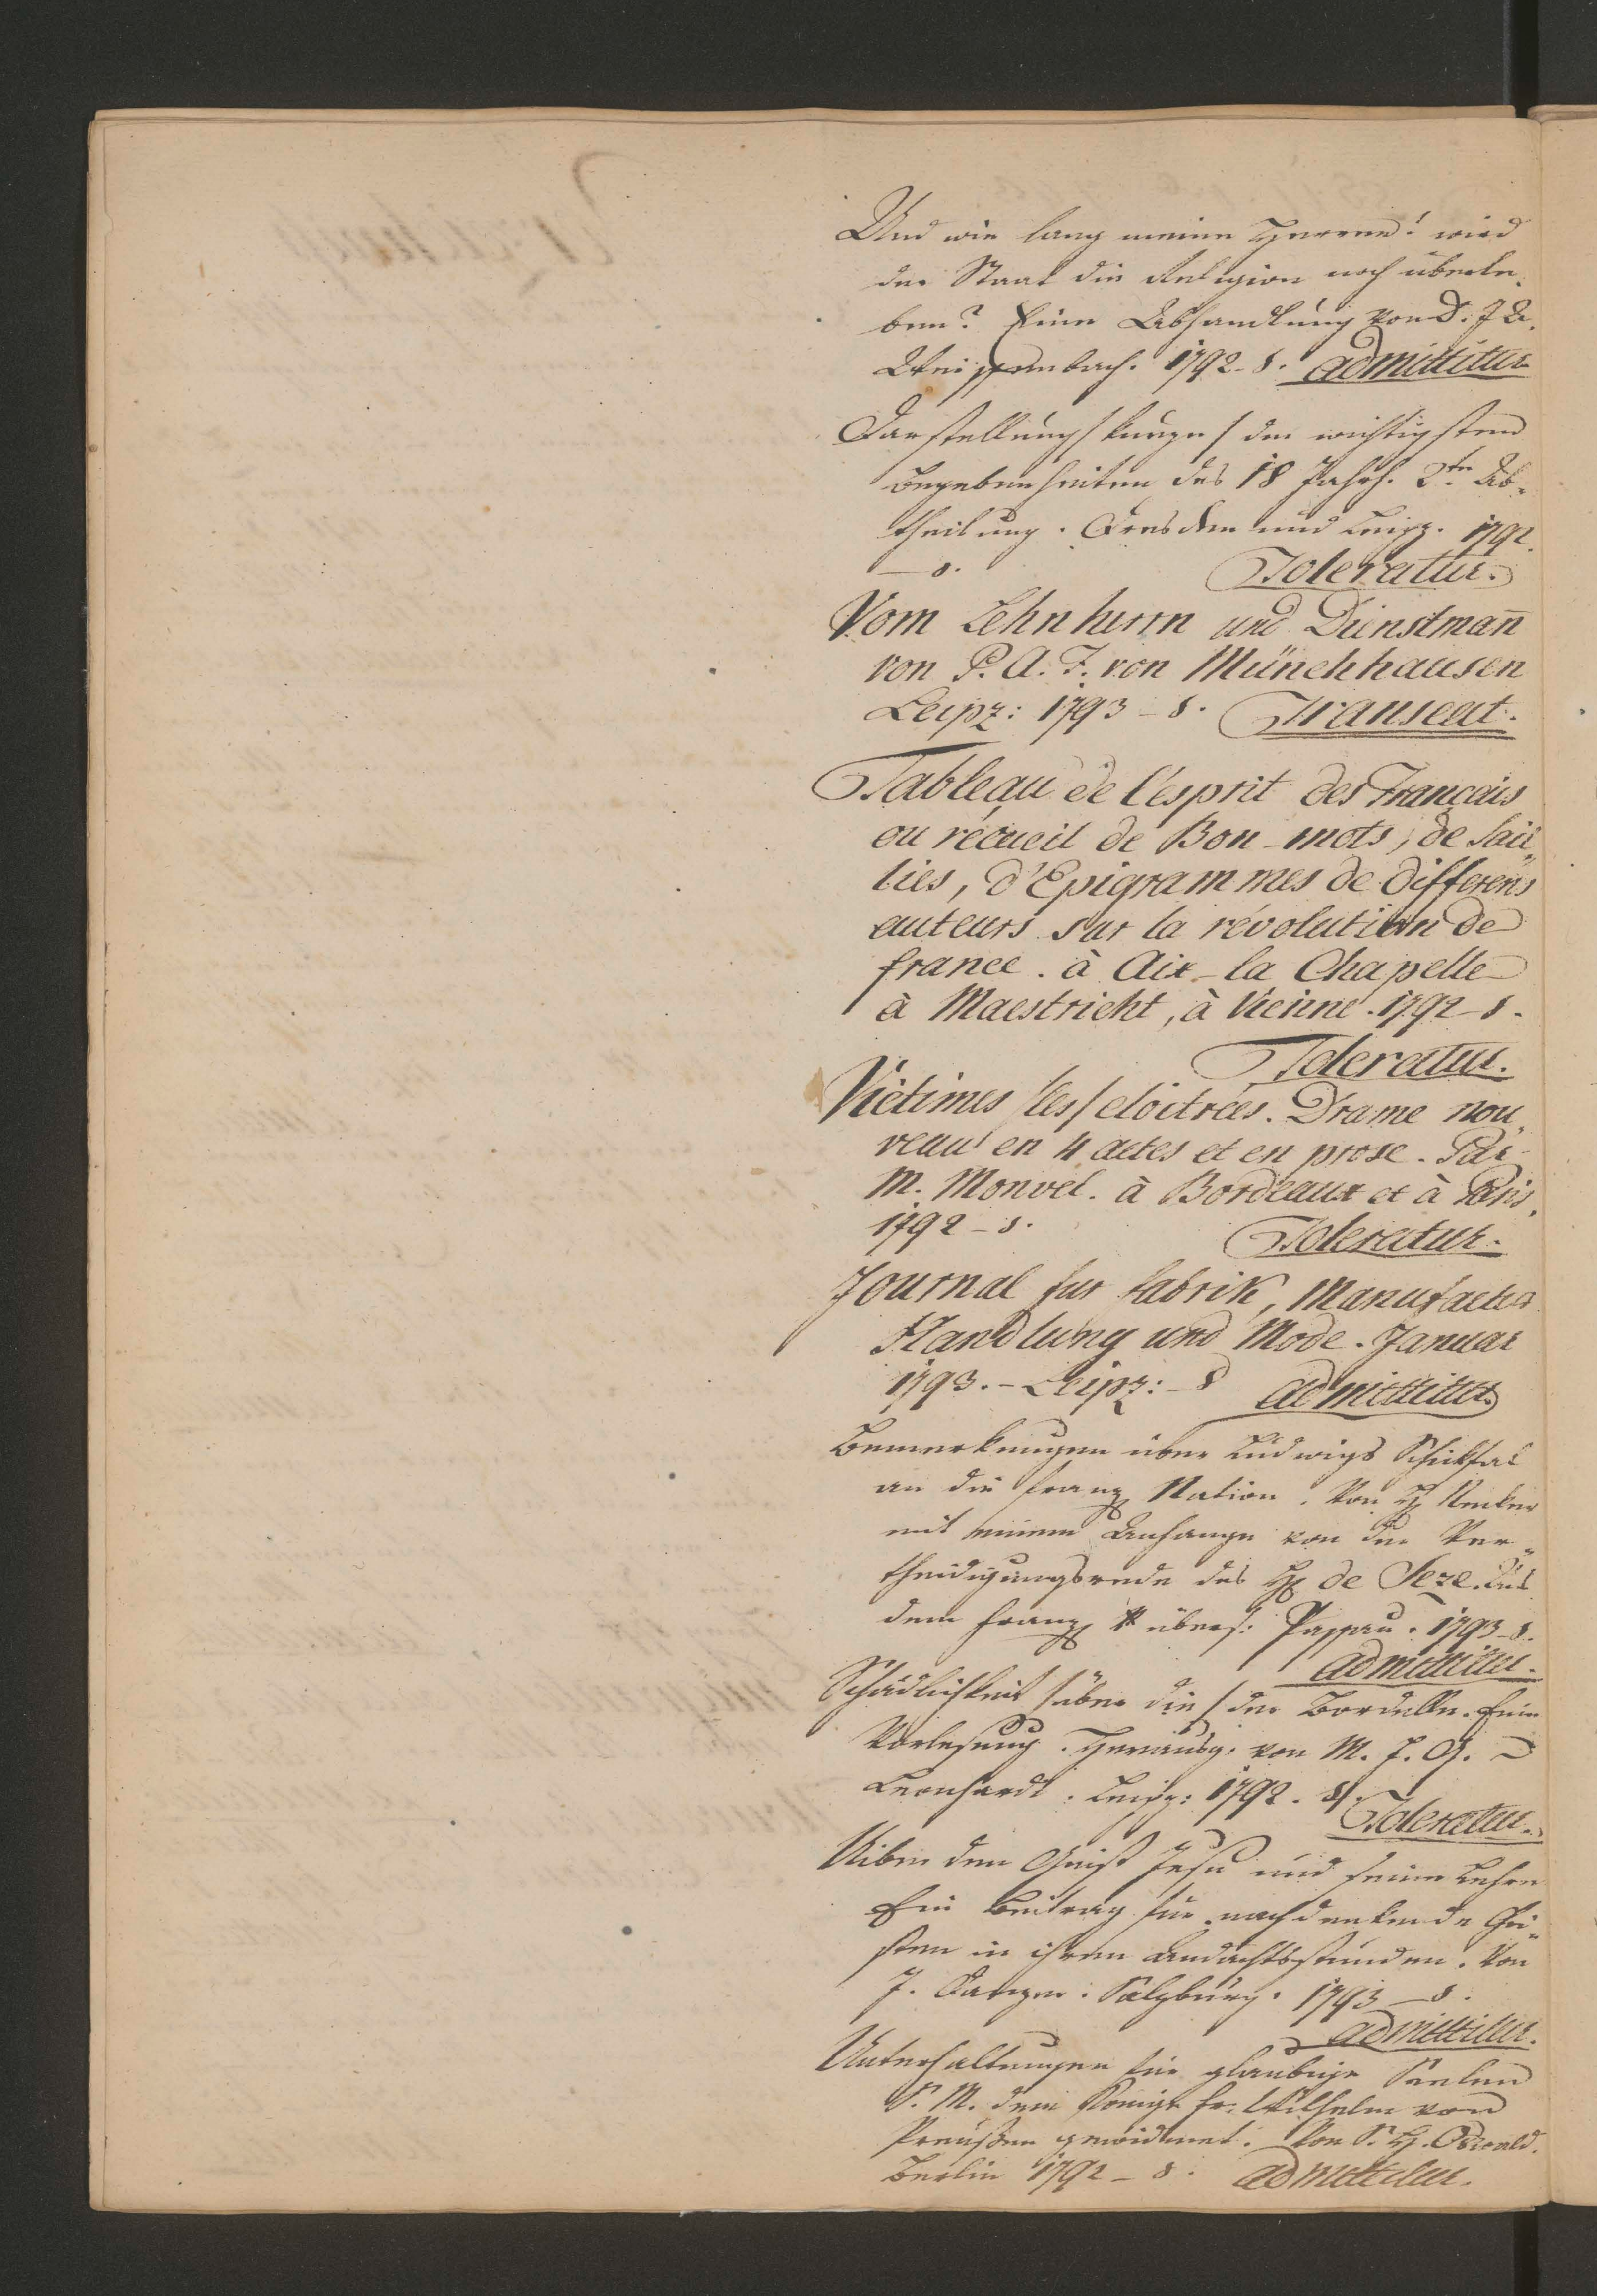 Und wie lang meine Herren! wird
der Staat die Religion noch überle-
ben? Eine Abhandlung von D: J A.
Weissenbach. 1792 - 8. admittitur
Darstellung / kurze / der wichtigsten
Begebenheiten des 18 Jahrh. 2te Ab-
theilung. Dresden und Leipz. 1792.
- 8. Toleratur.
Vom Lehnherrn und Dienstman̄
von P. A. F. von Münchhausen
Leipz: 1793 - 8. Transeat.
Tableau de l'esprit des Français
ou récueil de Bon-mots, de Sail„
lies, d'Epigrammes de differens
auteurs sur la révolution de
france. à Aix-la Chapelle
à Maestricht, à Vienne. 1792 - 8.
Toleratur.
Victimes /les/ cloitrées. Drame nou„
veau en 4 actes et en prose. Par
M. Monvel. à Bordeaux et à Paris.
1792 - 8. Toleratur.
Journal fur Fabrik, Manufactur
Handlung und Mode. Januar
1793. - Leipz: - 8 admittitur
Bemerkungen über Ludwigs Schiksal
an die franz Nation. Von H Necker
mit einem Anhange von der Ver„
theidigungsrede des H de Seze. Aus
dem franz übers: Passau. 1793 - 8.
admittitur.
Schädlichkeit /über die/ der Bordelle. Eine
Vorlesung. Herausg. von M. J. G.
Leonhardt. Leipz: 1792. 8.
Toleratur.
Uiber den Geist Jesu und seiner Lehre
Ein Beitrag für nachdenkende Chri„
sten in ihren Andachtsstunden. Von
J. Danzer. Salzburg. 1793 - 8.
admittitur.
Unterhaltungen für glaubige Seelen
S. M. dem Könige Fr: Wilhelm von
Preußen gewidmet. Von S. H. Oswald.
Berlin 1792 - 8. admittitur.